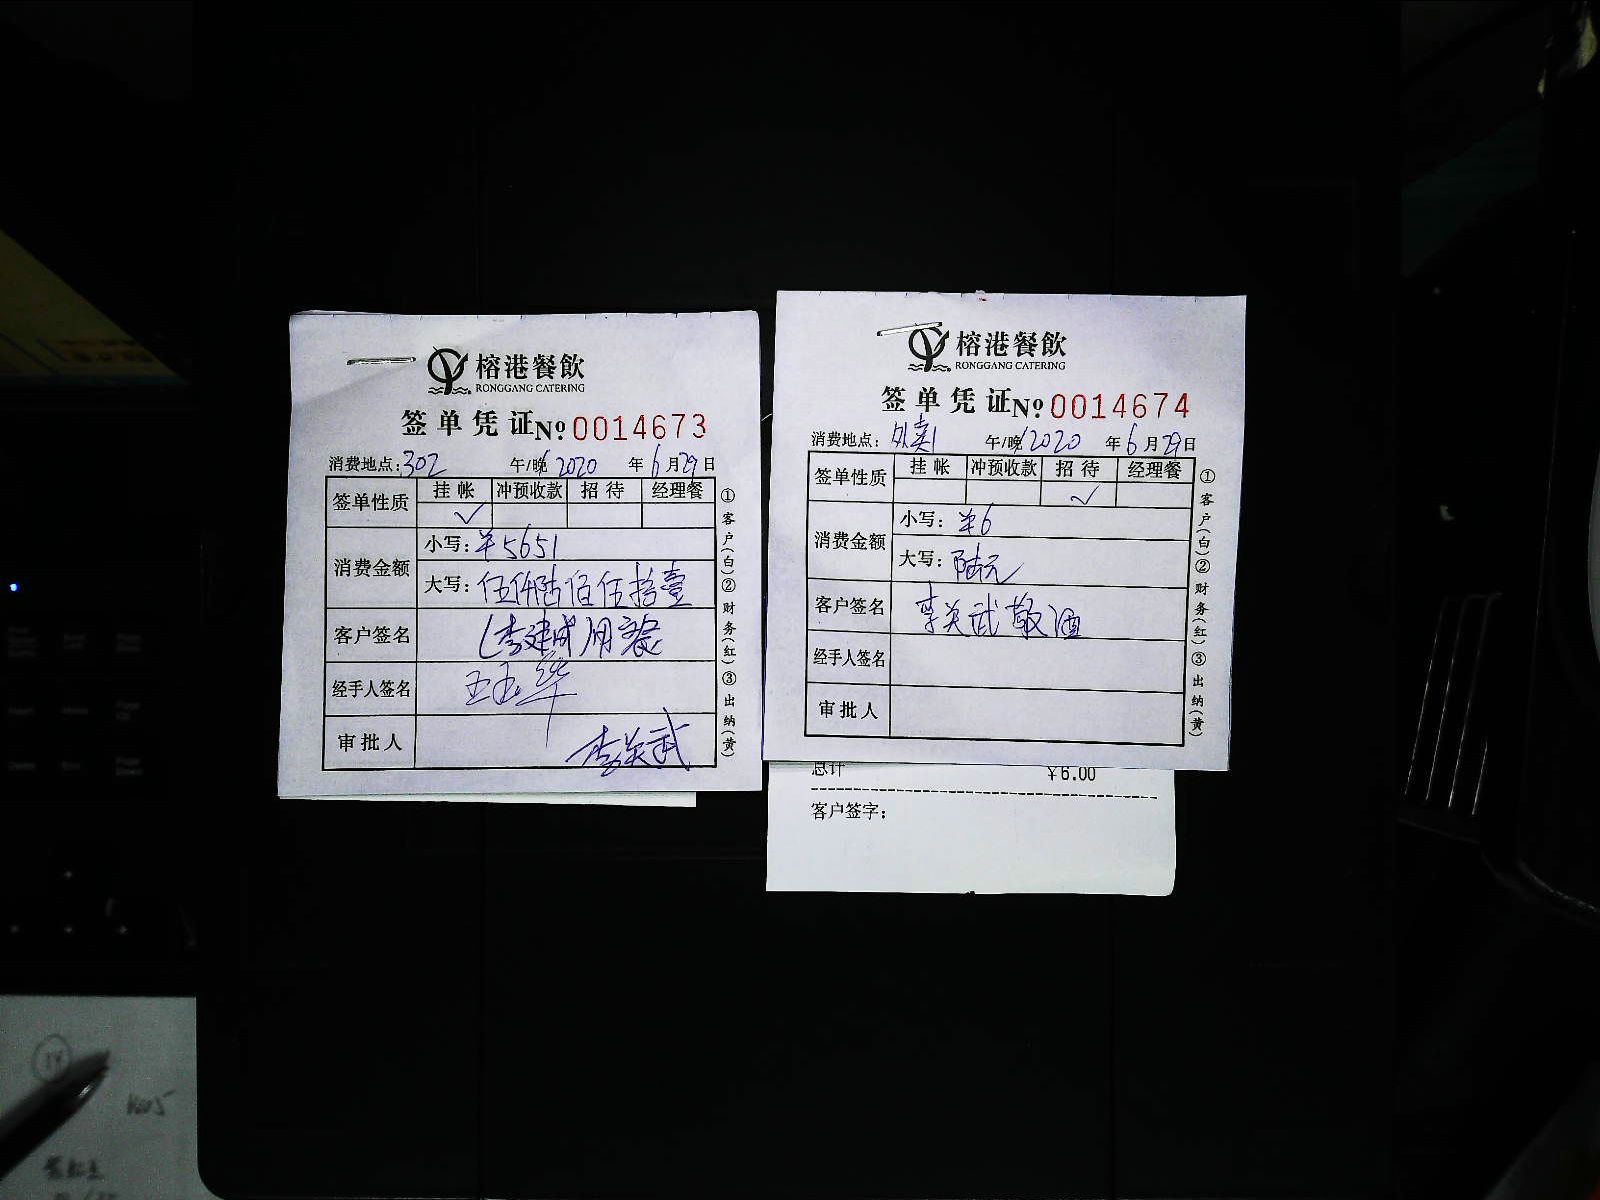 榕港餐飲
RONGGANG CATERING
签单凭证 № 0014673
消费地点:302 午/晚 2020 年 6 月 29 日
签单性质 挂帐 冲预收款 招待 经理餐
✓
消费金额 小写:¥5651
大写:伍仟陆佰伍拾壹
客户签名 (李建成)用餐
经手人签名 王玉华
审批人 李关武
①客户(白)②财务(红)③出纳(黄)
榕港餐飲
RONGGANG CATERING
签单凭证 № 0014674
消费地点:外卖1 午/晚 2020 年 6 月 29 日
签单性质 挂帐 冲预收款 招待 经理餐
✓
消费金额 小写:¥6
大写:陆元
客户签名 李关武敬酒
经手人签名
审批人
①客户(白)②财务(红)③出纳(黄)
总计 ¥6.00
客户签字: